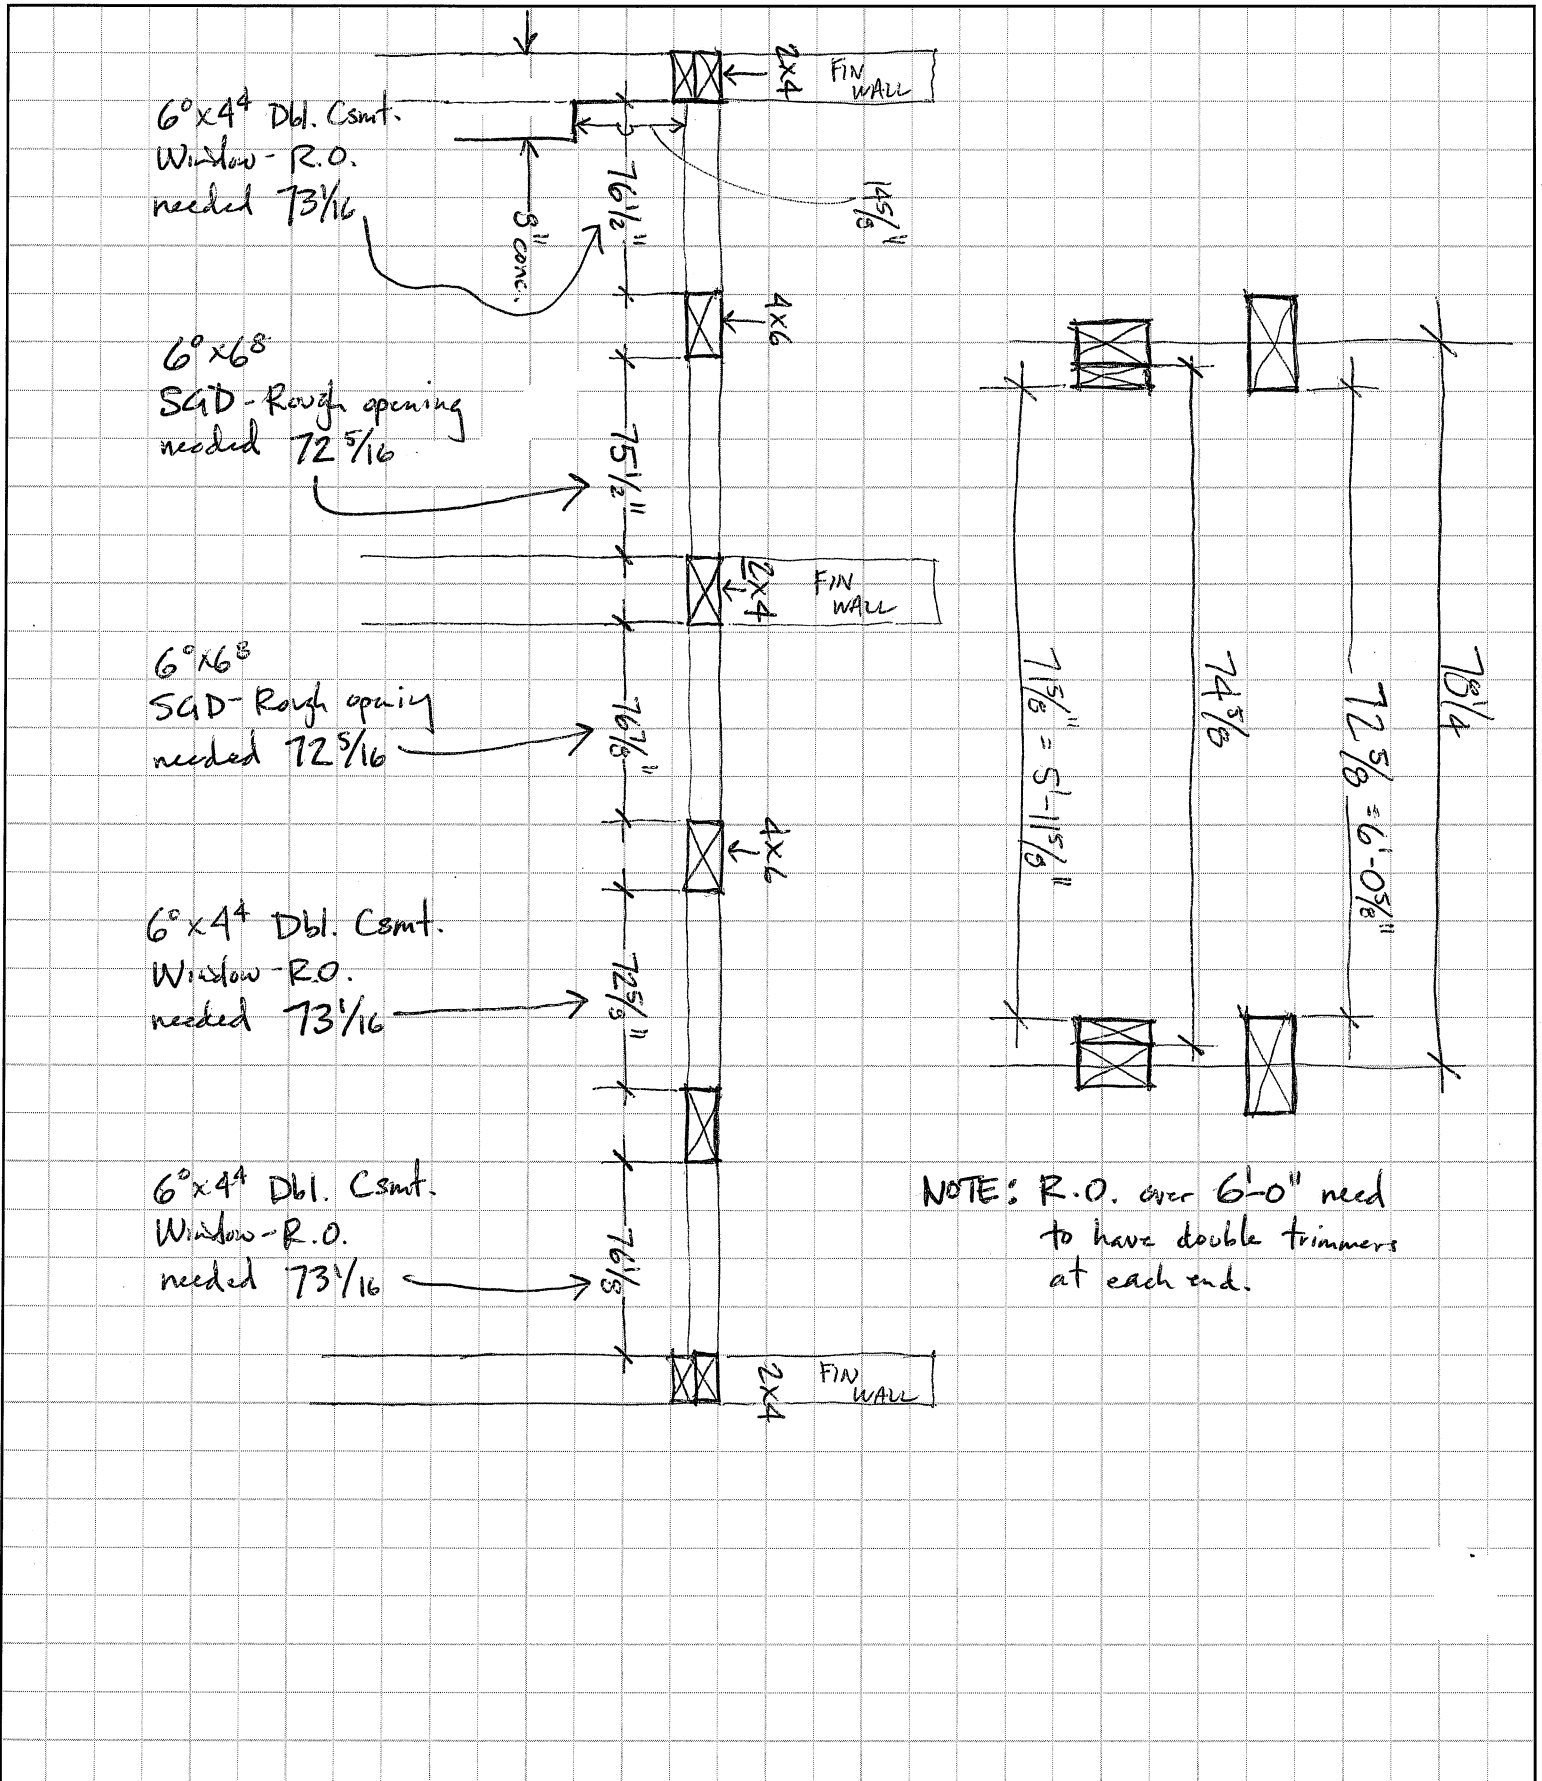 2x4
FIN
WALL
6⁰x4⁴ Dbl. Csmt.
Window - R.O.
needed 73 1/16
8" conc.
76 1/2"
4x6
6⁰x6⁸
SGD - Rough opening
needed 72 5/16
75 1/2"
2x4
FIN
WALL
6⁰x6⁸
SGD - Rough opening
needed 72 5/16
76 7/8"
4x6
6⁰x4⁴ Dbl. Csmt.
Window - R.O.
needed 73 1/16
72 5/8"
6⁰x4⁴ Dbl. Csmt.
Window - R.O.
needed 73 1/16
76 1/8
2x4
FIN
WALL
71 5/8" = 5'-11 5/8"
74 5/8
72 5/8 = 6'-0 5/8"
78 1/4
NOTE: R.O. over 6'-0" need
to have double trimmers
at each end.